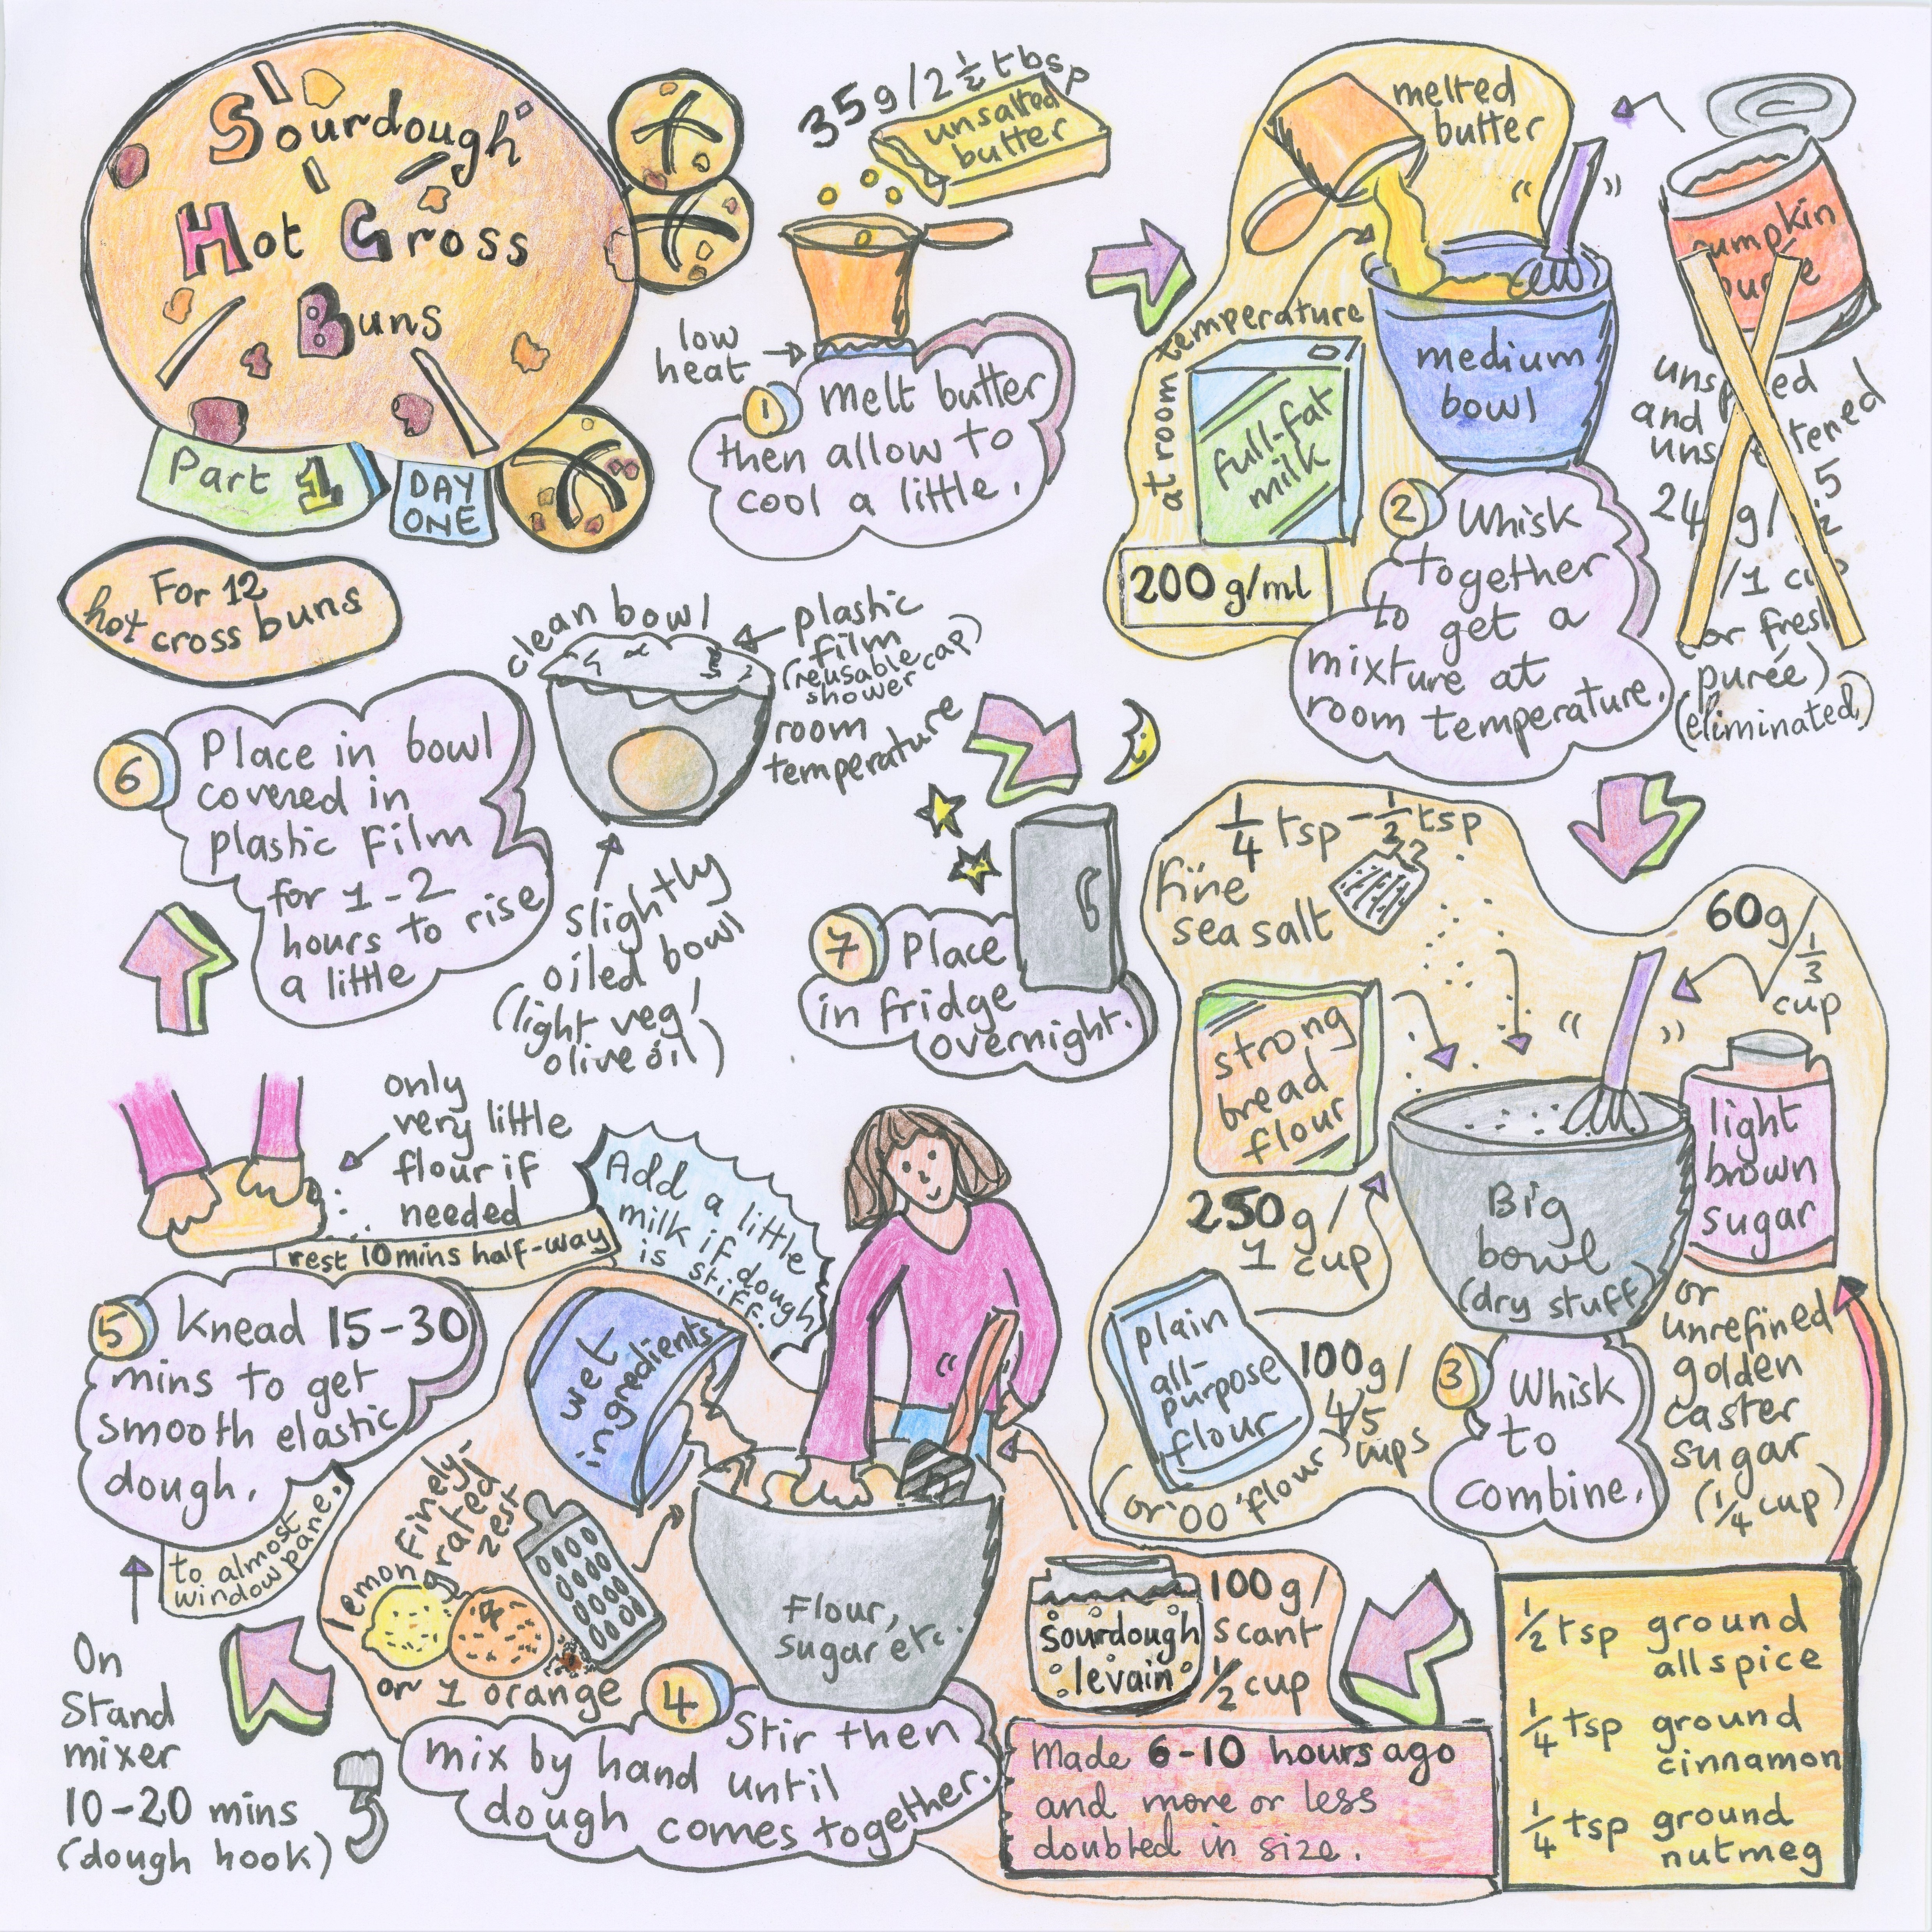 Sourdough
Hot Cross
Buns
Part 1
DAY
ONE
For 12
hot cross buns
35g/2½tbsp
unsalted
butter
low
heat
1
Melt butter
then allow to
cool a little.
melted
butter
at room temperature
full-fat
milk
200 g/ml
medium
bowl
2
Whisk
together
to get a
mixture at
room temperature.
pumpkin
and
/1 cup
(or fresh
purée)
(eliminated)
¼ tsp-½tsp
fine
sea salt
strong
bread
flour
250g/
1 cup
plain
all-
purpose
flour
100g/
4/5
cups
(or '00' flour)
60g/
⅓
cup
light
brown
sugar
or
unrefined
golden
caster
sugar
(¼ cup)
Big
bowl
(dry stuff)
3
Whisk
to
combine.
½tsp ground
allspice
¼tsp ground
cinnamon
¼tsp ground
nutmeg
sourdough
levain
100g/
scant
½cup
Made 6-10 hours ago
and more or less
doubled in size.
wet
ingredients
Add a little
milk if dough
is stiff.
lemon finely-
grated
zest
or 1 orange
Flour,
sugar etc.
4
Stir then
mix by hand until
dough comes together.
only
very little
flour if
needed
rest 10mins half-way
5
Knead 15-30
mins to get
smooth elastic
dough.
to almost
windowpane.
On
Stand
mixer
10-20 mins
(dough hook)
6
Place in bowl
covered in
plastic film
for 1-2
hours to rise
a little
clean bowl
plastic
film
(reusable
shower cap)
room
temperature
slightly
oiled bowl
(light veg/
olive oil)
7
Place
in fridge
overnight.